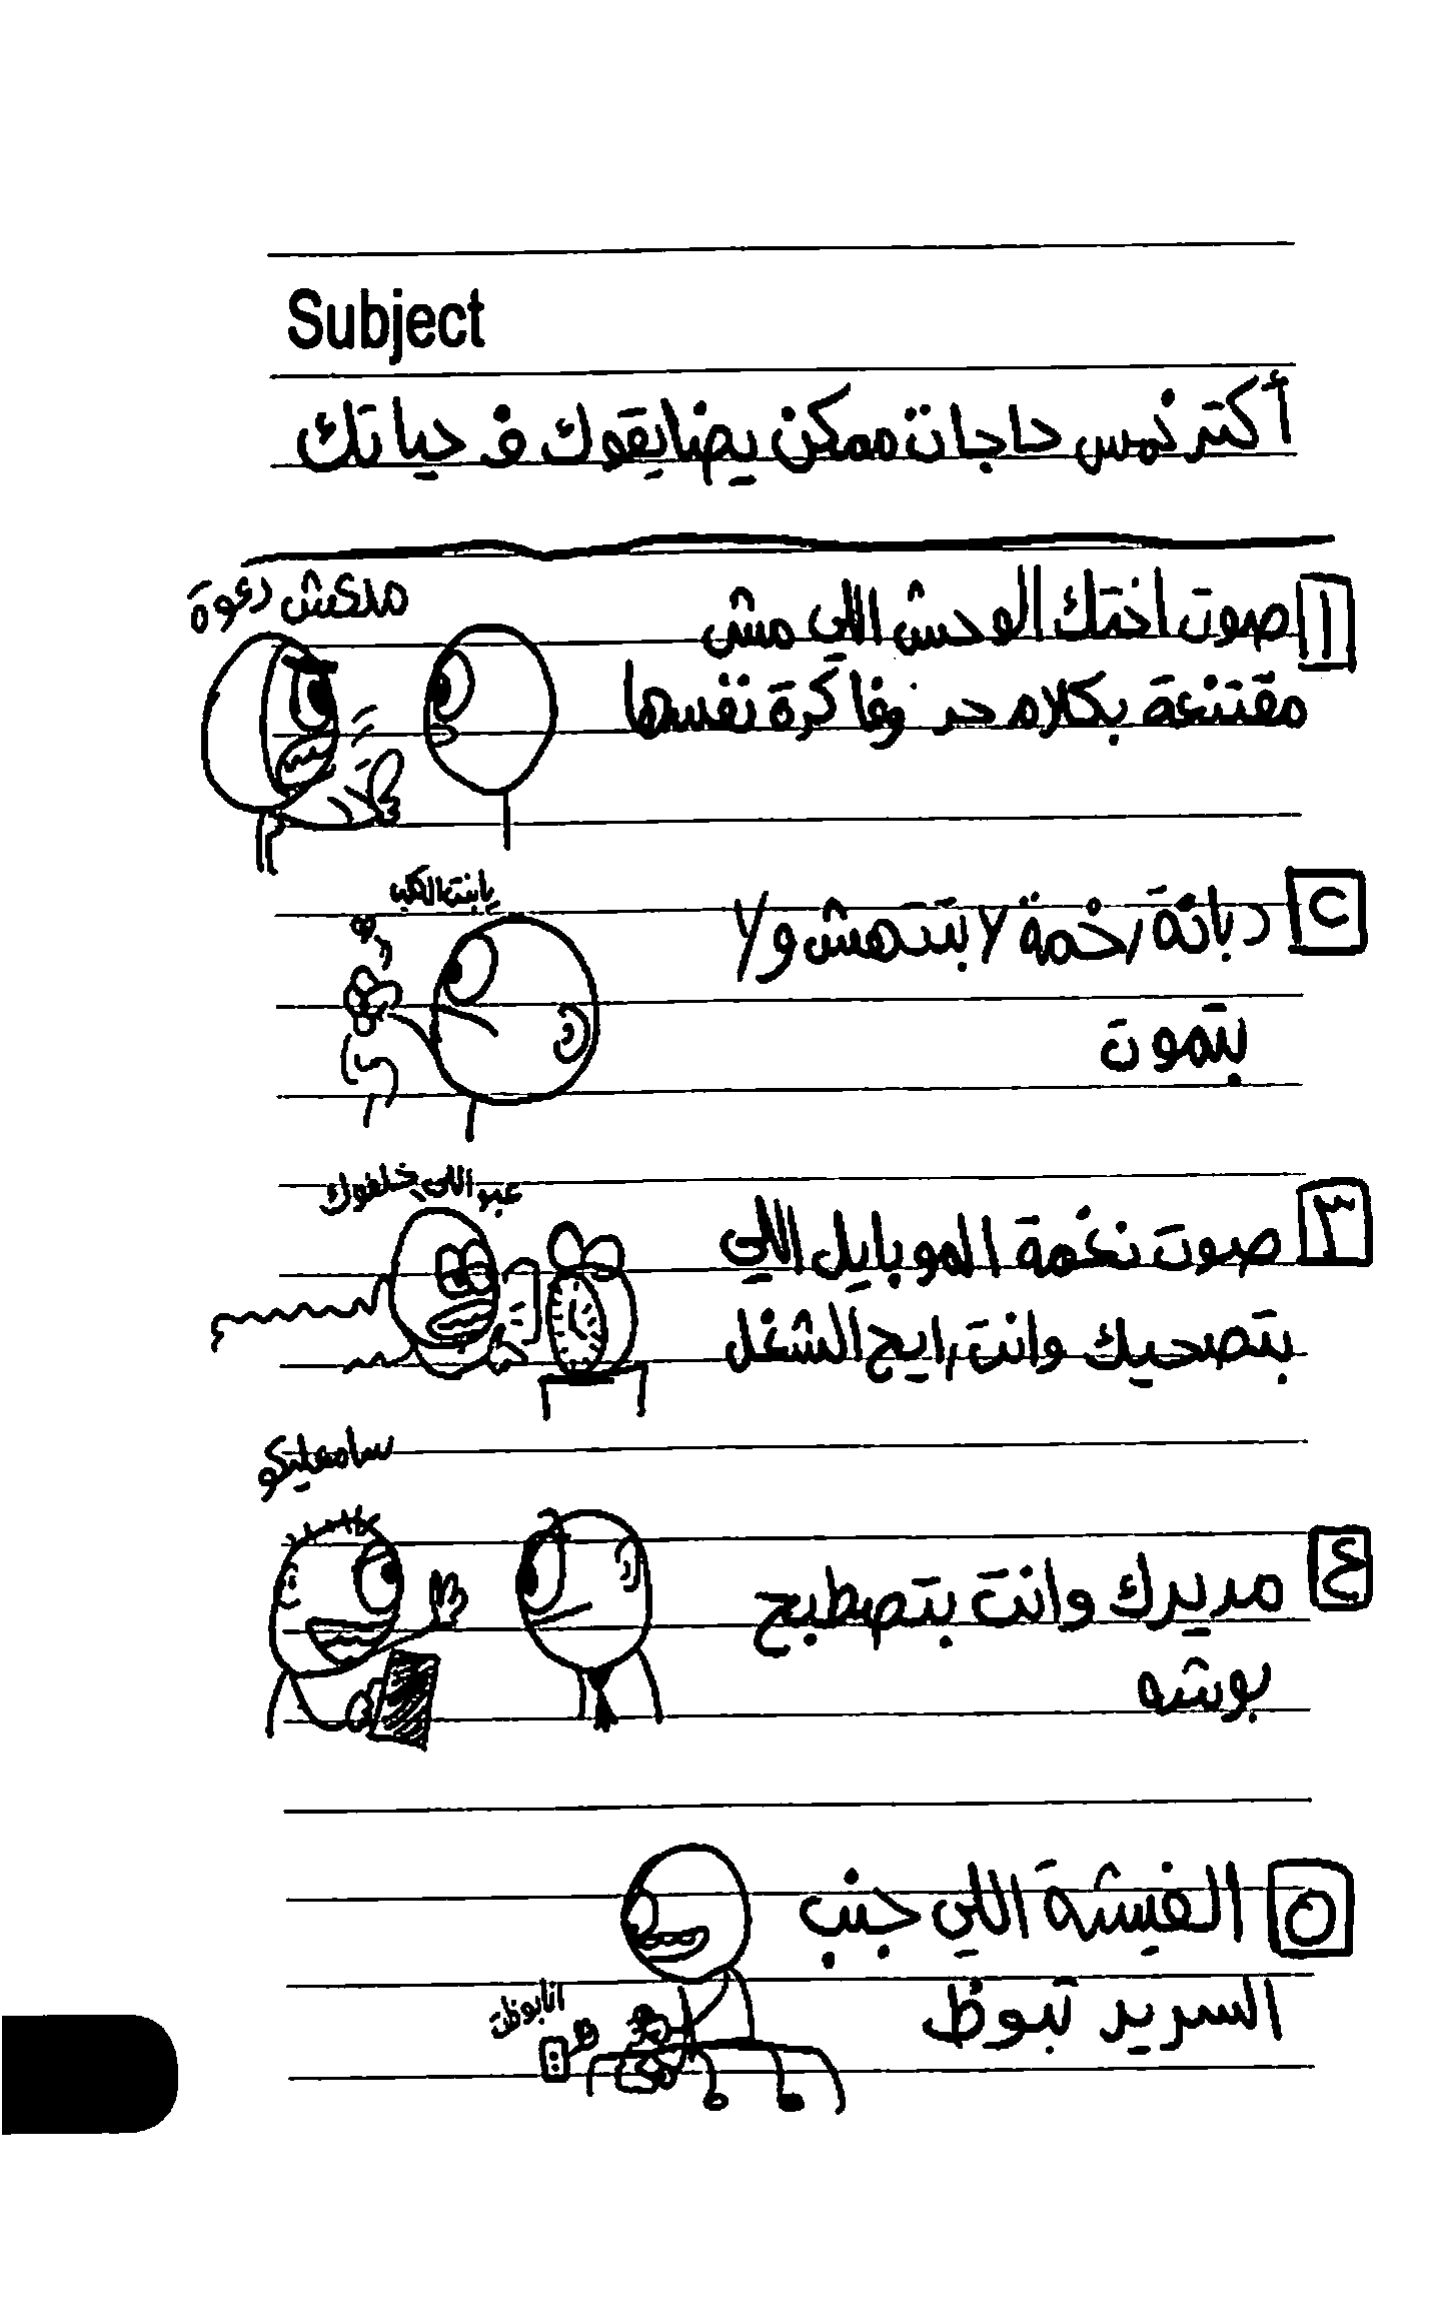 Subject
أكتر خمس حاجات ممكن يضايقوك ف حياتك
ملكش دعوة
١ صوت اختك الوحش اللي مش
مقتنعة بكلام حد وفاكرة نفسها
يا بنت الكلب
٢ دبانة رخمة لا بتتهش ولا
بتموت
عبو اللي خلفوك
٣ صوت نغمة الموبايل اللي
بتصحيك وانت رايح الشغل
سامعليكو
٤ مديرك وانت بتصطبح
بوشه
٥ الفيشة اللي جنب
السرير تبوظ
انا بوظت